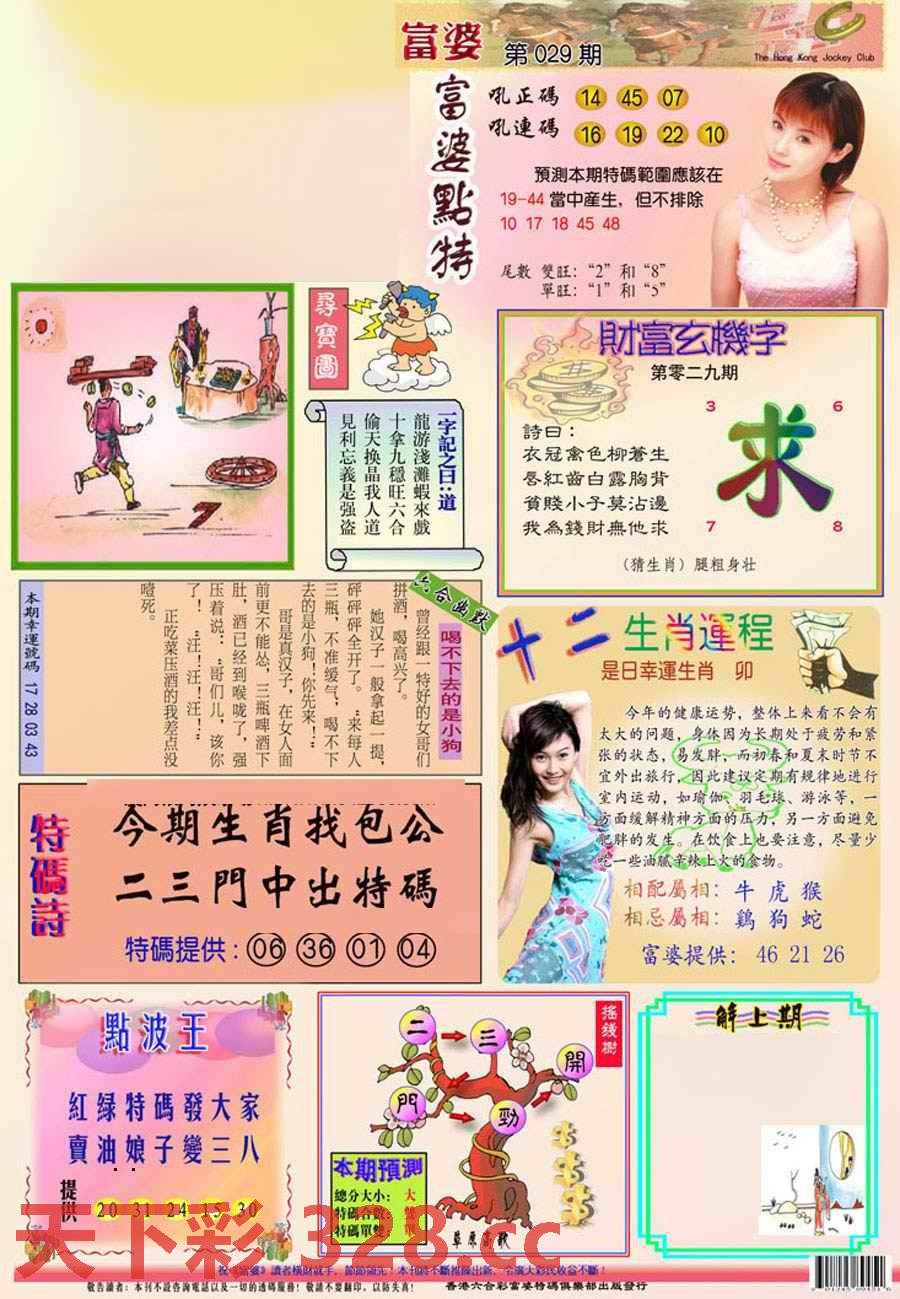 富婆 第029期
The Hong Kong Jockey Club
富婆點特
吼正碼 14 45 07
吼連碼 16 19 22 10
預測本期特碼範圍應該在
19-44當中産生，但不排除
10 17 18 45 48
尾數 雙旺：“2”和“8”
單旺：“1”和“5”
尋寶圖
一字記之曰：道
龍游淺灘蝦來戲
十拿九穩旺六合
偷天換晶我人道
見利忘義是强盗
財富玄機字
第零二九期
詩曰：
衣冠禽色柳蒼生
唇紅齒白露胸背
貧賤小子莫沾邊
我為錢財無他求
3 6
求
7 8
（猜生肖）腿粗身壮
六合幽默
喝不下去的是小狗
曾经跟一特好的女哥们
拼酒，喝高兴了。
她汉子一般拿起一提，
砰砰砰全开了。“来每人
三瓶，不准缓气，喝不下
去的是小狗！你先来！”
哥是真汉子，在女人面
前更不能怂，三瓶啤酒下
肚，酒已经到喉咙了，强
压着说：“哥们儿，该你
了！“汪！汪！汪！”
正吃菜压酒的我差点没
噎死。
本期幸運號碼 17 28 03 43
十二生肖運程
是日幸運生肖 卯
今年的健康运势，整体上来看不会有
太大的问题，身体因为长期处于疲劳和紧
张的状态，易发胖，而初春和夏末时节不
宜外出旅行，因此建议定期有规律地进行
室内运动，如瑜伽、羽毛球、游泳等，一
方面缓解精神方面的压力，另一方面避免
肥胖的发生。在饮食上也要注意，尽量少
吃一些油腻辛辣上火的食物。
相配屬相：牛 虎 猴
相忌屬相：鷄 狗 蛇
富婆提供：46 21 26
特碼詩
今期生肖找包公
二三門中出特碼
特碼提供：06 36 01 04
點波王
紅绿特碼發大家
賣油娘子變三八
提供 20 31 24 15 30
搖錢樹
二 三
開
門 勁
本期預測
總分大小：大
特碼合數：雙
特碼單雙：單
草原高歌
解上期
天下彩 328.cc
祝《富婆》讀者橫財就手，節節領先！本刊將不斷推陳出新，令廣大彩民收益不斷！
敬告讀者：本刊不設咨詢電話以及一切的透碼服務！敬請不要翻印，以防失真！
香港六合彩富婆特碼俱樂部出版發行